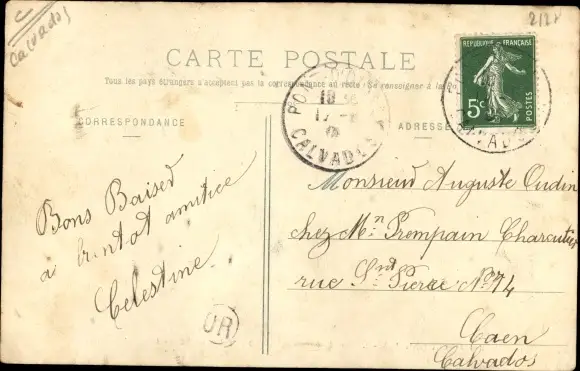 C
Calvados
CARTE POSTALE
Tous les pays étrangers n'acceptent pas la correspondance au recto. Se renseigner à la
CORRESPONDANCE
ADRESSE
REPUBLIQUE FRANÇAISE
5c
POSTES
CALVADOS
OR
Bons Baised
a bientot amitice
Celestine
Monsieur Auguste Oudin
chez Mn Prempain Charcutier
rue Snt Pierre No 74
Caen
Calvados